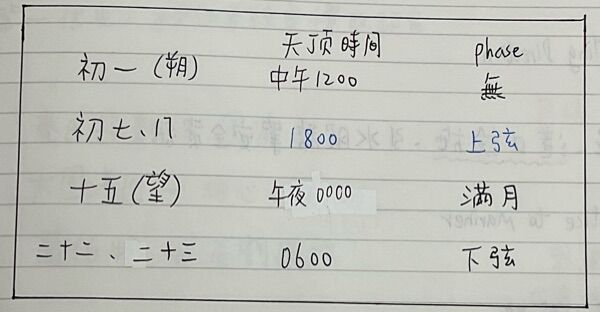 天顶時間 phase
初一 (朔) 中午1200 無
初七、八 1800 上弦
十五(望) 午夜0000 滿月
二十二、二十三 0600 下弦